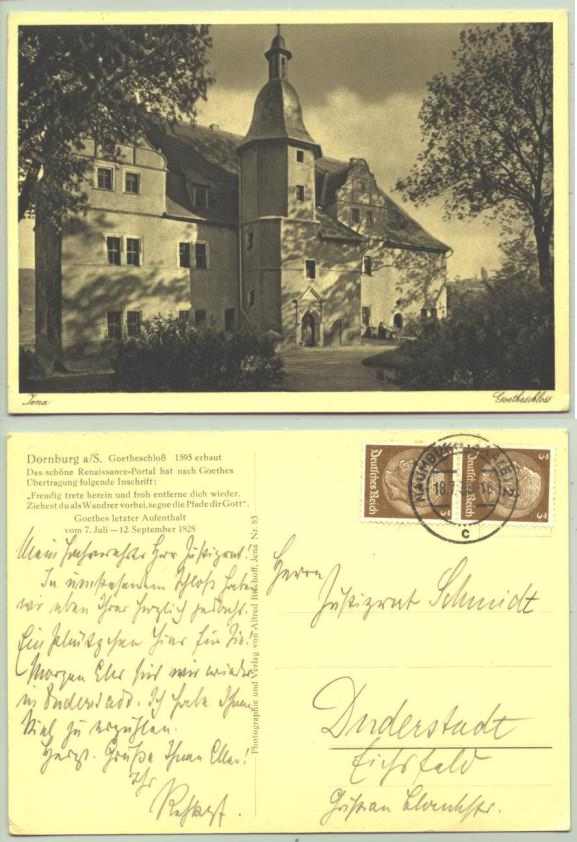 Jena
Goetheschloss
Dornburg a/S. Goetheschloß 1595 erbaut
Das schöne Renaissance-Portal hat nach Goethes
Übertragung folgende Inschrift:
„Freudig trete herein und froh entferne dich wieder,
Ziehest du als Wandrer vorbei, segne die Pfade dir Gott".
Goethes letzter Aufenthalt
vom 7. Juli — 12. September 1828
Mein sehr verehrter Herr Justizrat!
In umstehendem Schloß haben
wir eben Ihrer herzlich gedacht.
Ein Plätzchen hier für Sie!
Morgen Abend sind wir wieder
in Duderstadt. Ich habe Ihnen
viel zu erzählen.
Herzl. Grüße Ihnen Allen!
Ihr
Photographie und Verlag von Alfred Bischoff, Jena Nr. 83
Deutsches Reich
3
Deutsches Reich
3
NAUMBURG
c
Herrn
Justizrat Schmidt
Duderstadt
Eichsfeld